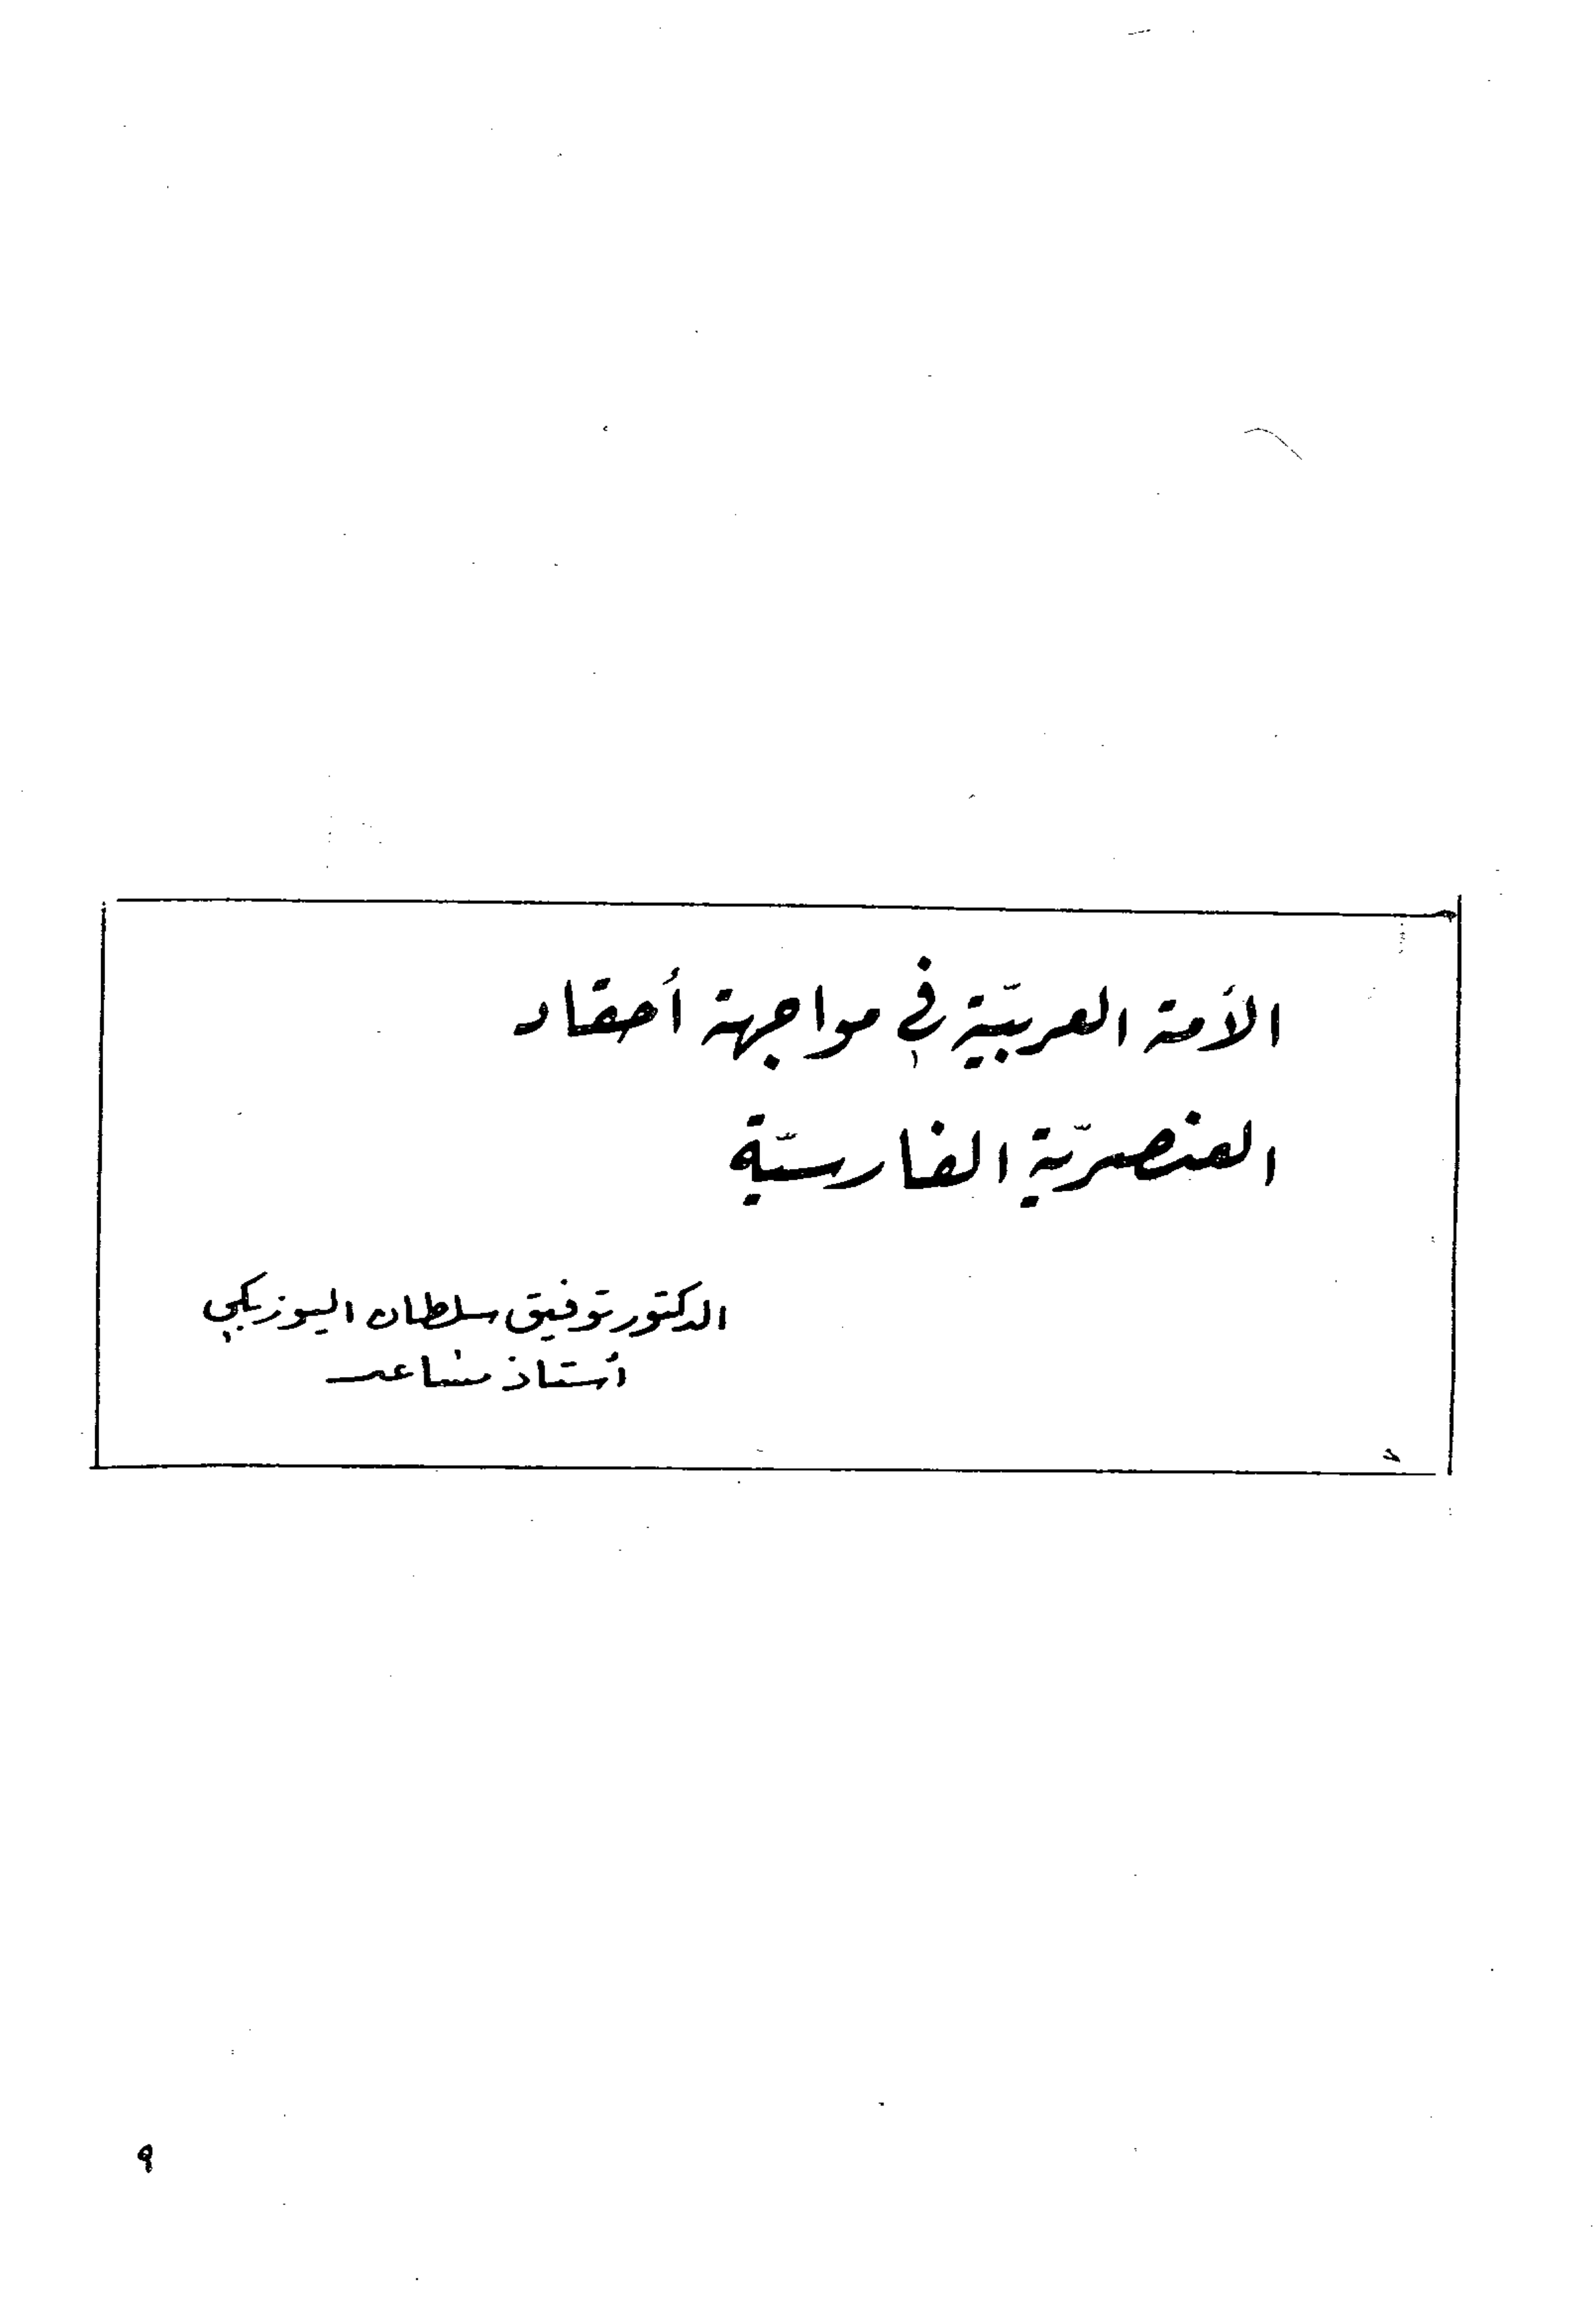 الأمة العربيّة في مواجهة أحقاد
العنصريّة الفارسيّة
الدكتور توفيق سلطان اليوزبكي
أستاذ مساعد
٩